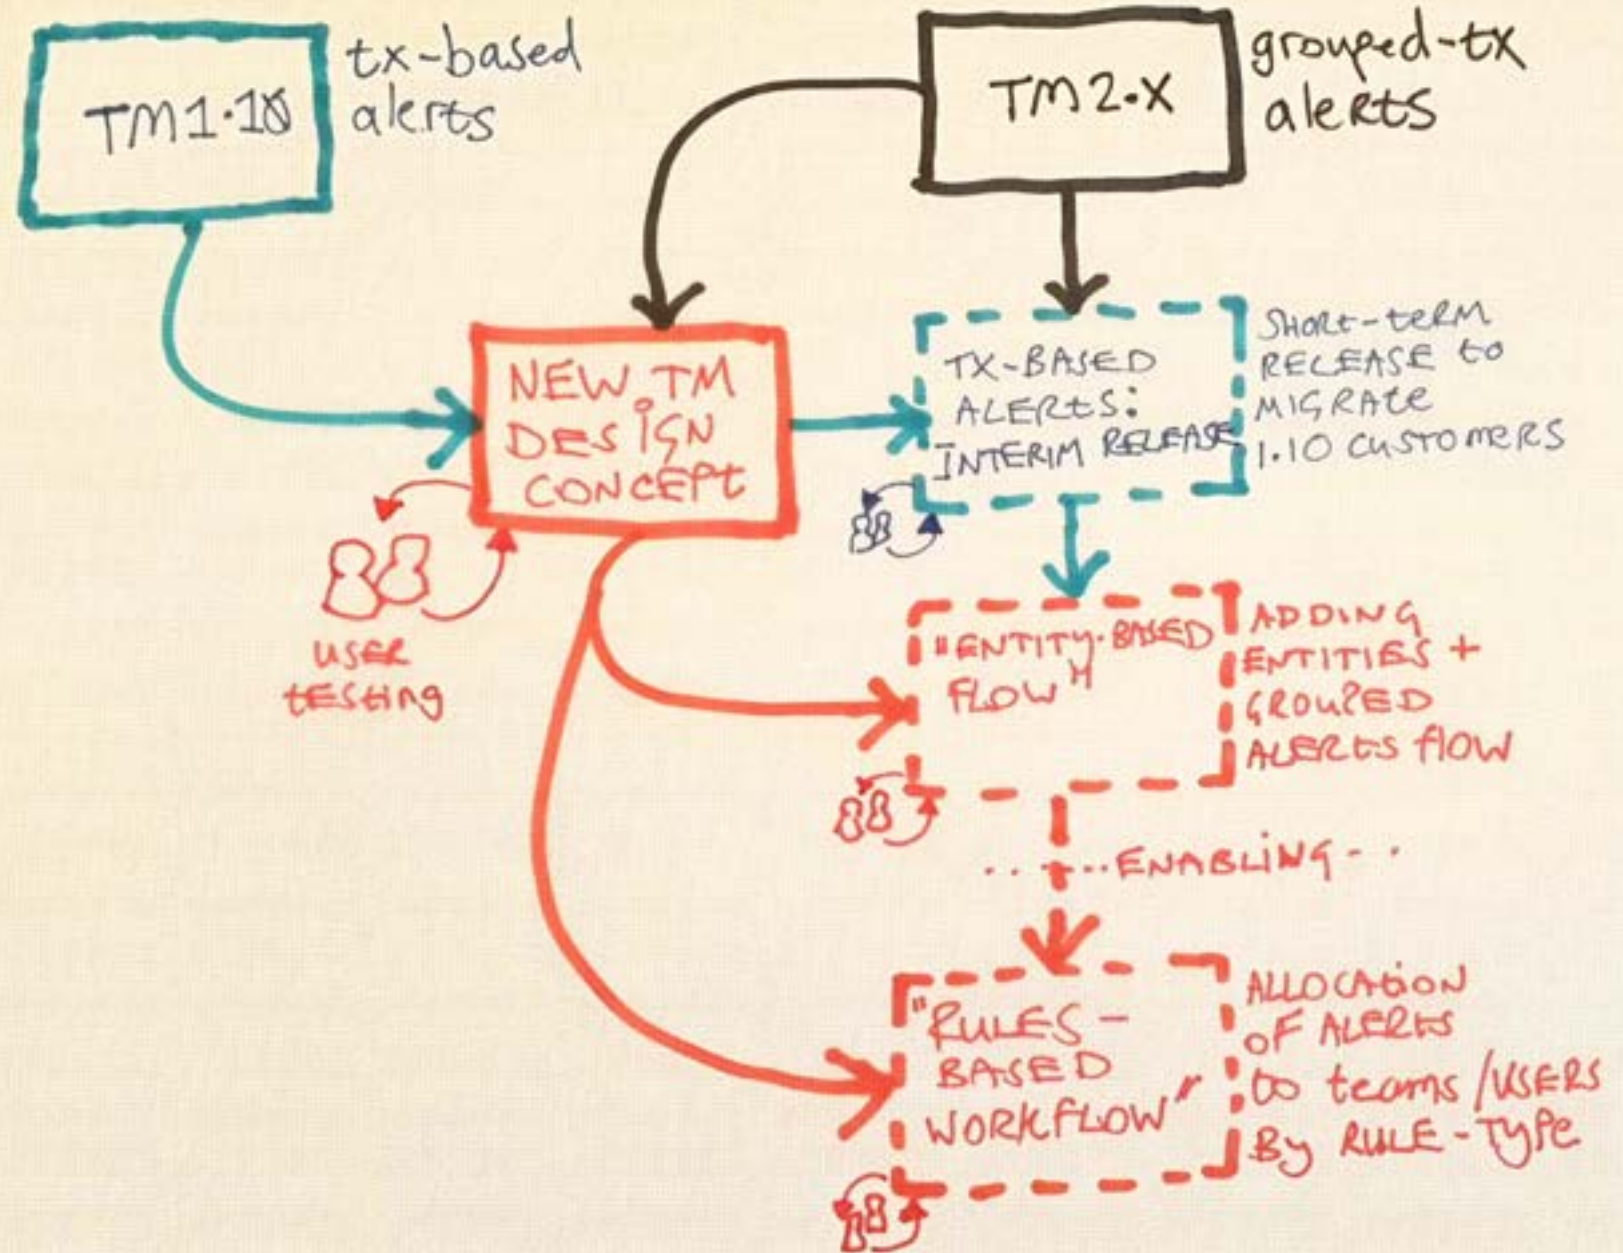 TM1.10
tx-based
alerts
TM2.X
grouped-tx
alerts
NEW TM
DESIGN
CONCEPT
USER
testing
TX-BASED
ALERTS:
INTERIM RELEASE
SHORT-TERM
RELEASE to
MIGRATE
1.10 CUSTOMERS
"ENTITY-BASED
FLOW"
ADDING
ENTITIES +
GROUPED
ALERTS flow
.. ...ENABLING- ·
"RULES-
BASED
WORKFLOW"
ALLOCATION
OF ALERTS
to teams/USERS
By RULE-TYPE